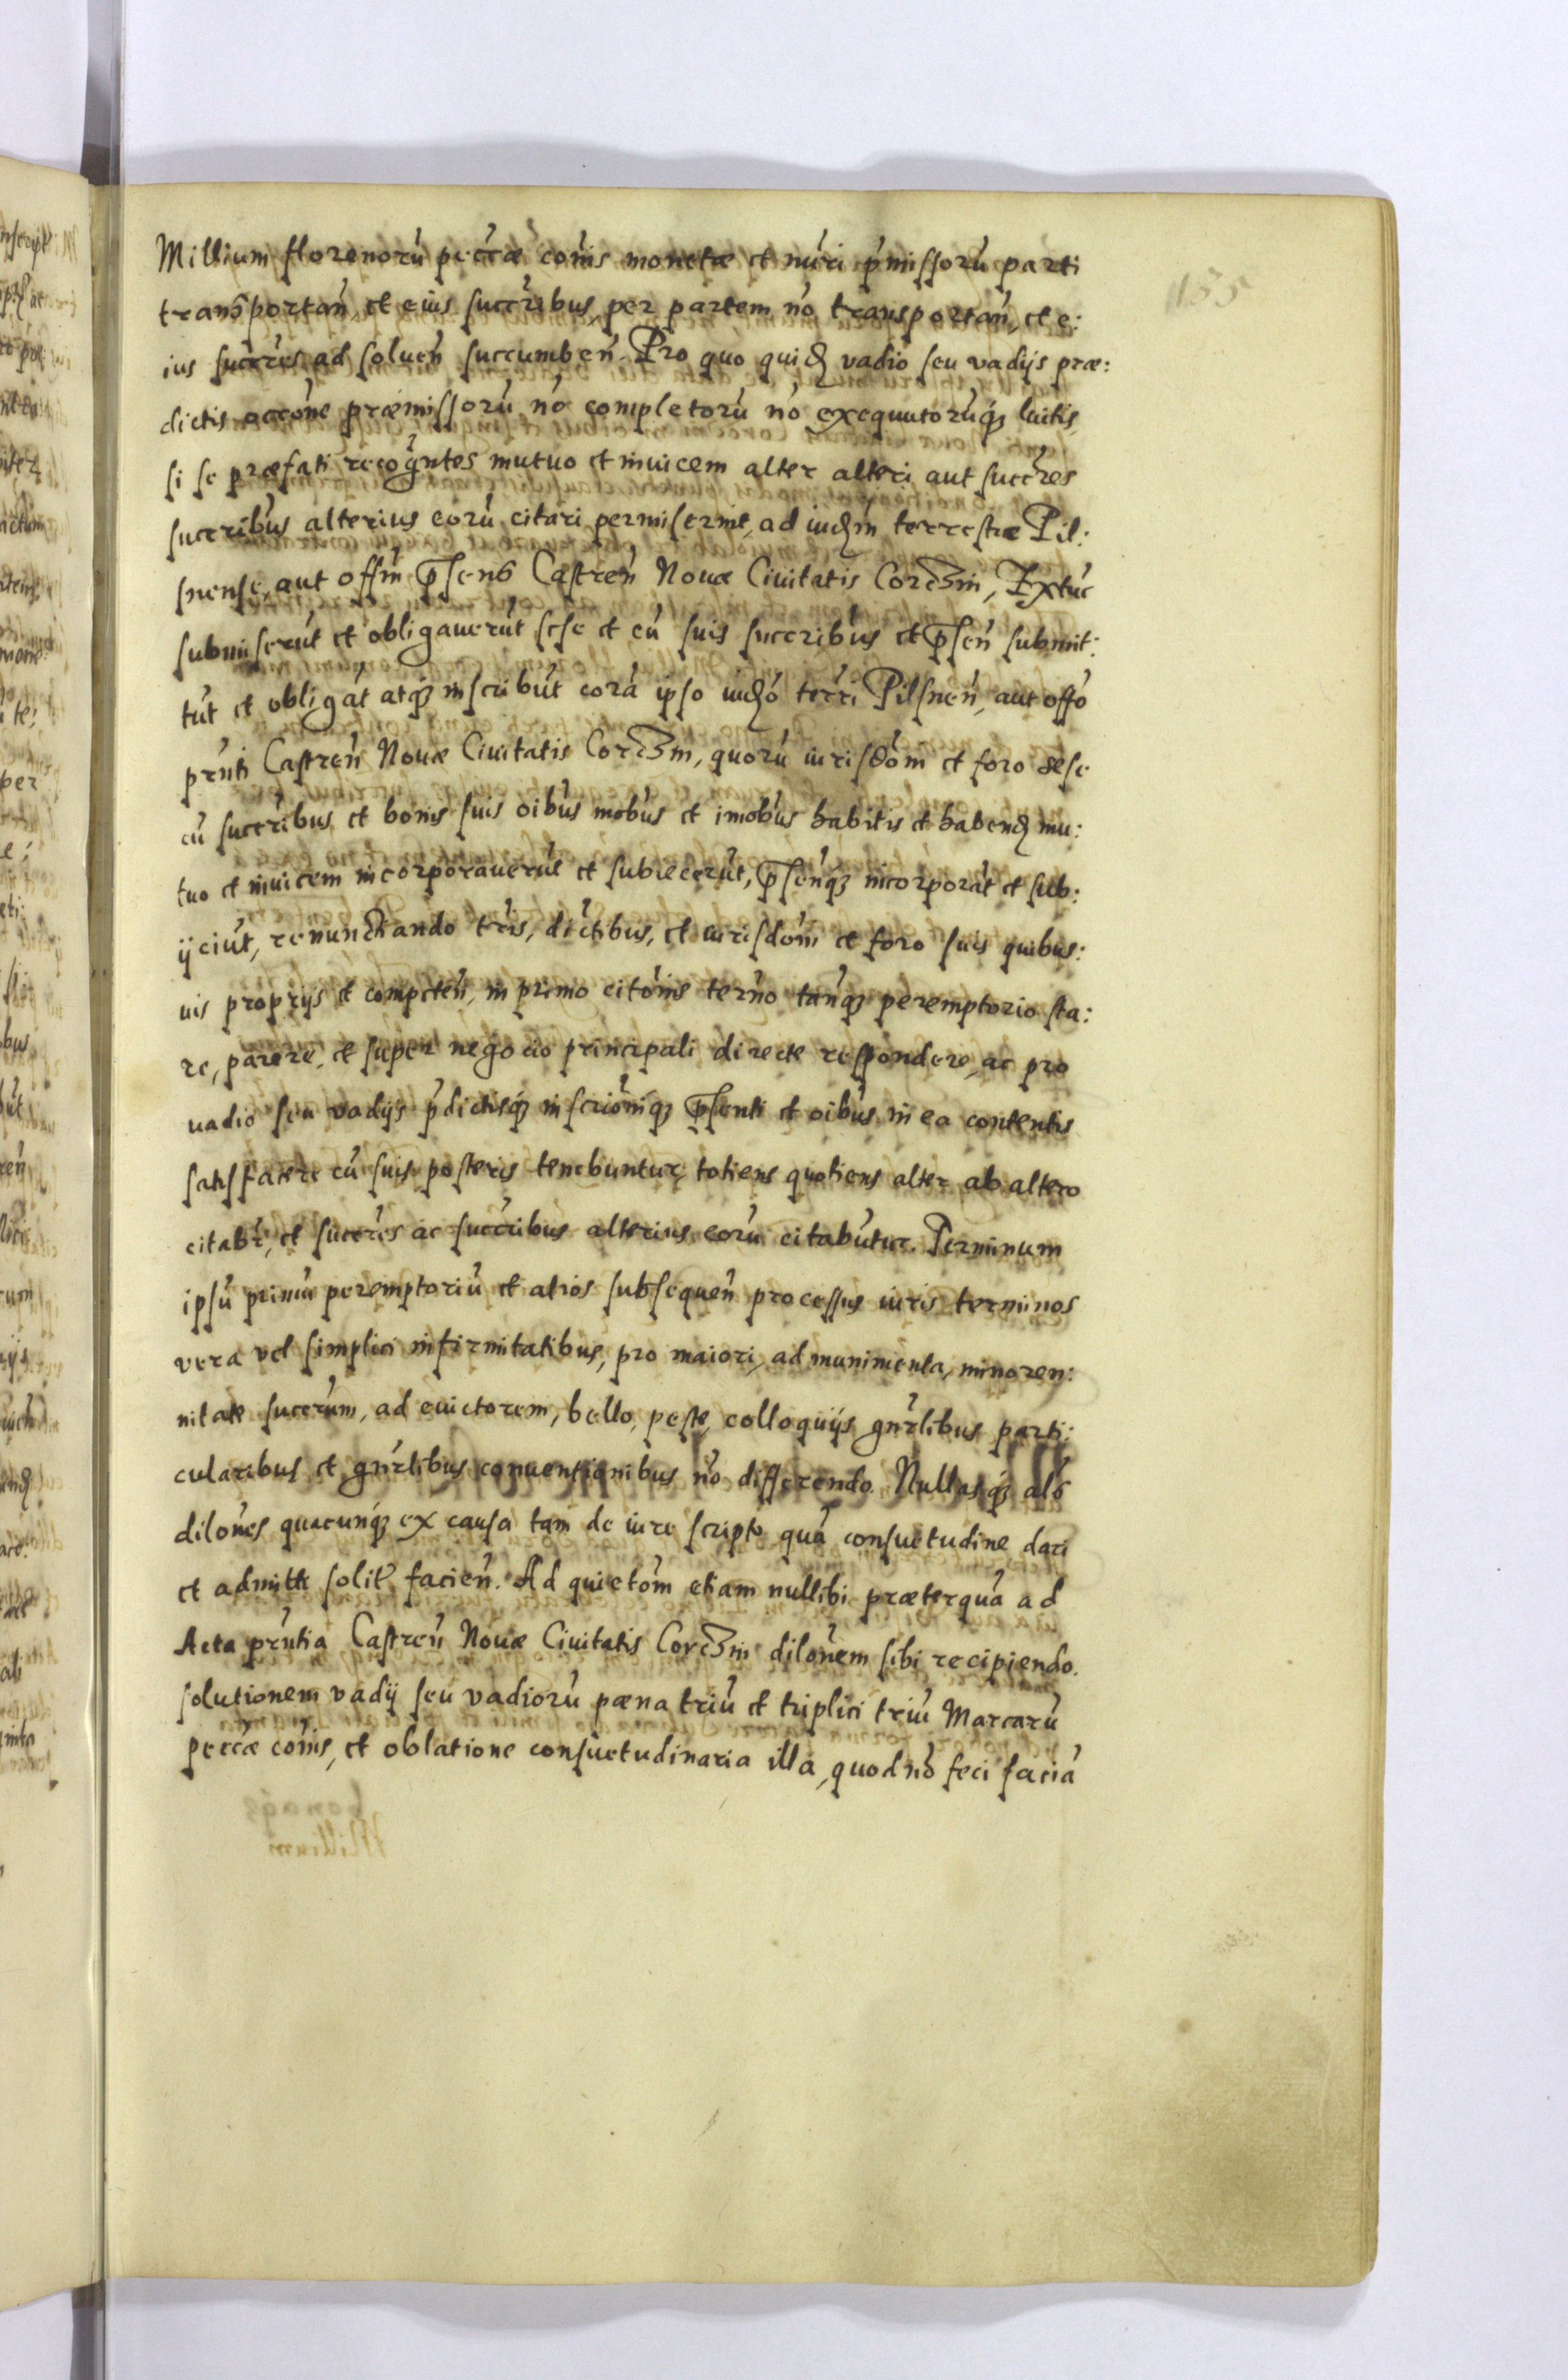 Millium florenorū peccæ cōīs monetæ et nūri p̄missorū parti
transportan̄, et eius succribus, per partem nō transportan̄, et e:
ius succres ad soluen̄ succumben̄. Pro quo quid̨ vadio seu vadijs præ:
dictis occōne præmissorū nō completorū nō exequutorūq́ȝ luitis,
si se præfati recogn̄tes mutuo et inuicem alter alteri aut succres
succribus alterius eorū citari permiserint, ad iud̨m terrestræ Pil:
snense, aut offm p̄sens Castren̄ Nouæ Ciuitatis Corczin, Extūc
submiserūt et obligauerūt sese et cū suis succribus et p̄sen̄ submit:
tūt et obligāt atq́ȝ inscribūt corā ipso iud̨o terri Pilsnen̄, aut offo
prn̄ti Castren̄ Nouæ Ciuitatis Corczin, quorū iurisdōni et foro sese
cū succribus et bonis suis oibus mobus et īmobus habitis et habend̨ mu:
tuo et inuicem incorporauerūt et subiecerūt, p̄senq́ȝ incorporāt et sub:
ijciūt, renunctiando trīs, dictibus, et iurisdōni et foro suis quibus:
uis proprijs et competen̄, in primo citōnis terno tanq́ȝ peremptorio sta:
re, parere, et super negocio principali directe respondere, ac pro
uadio seu vadijs p̄dictisq́ȝ inscriōniq́ȝ p̄senti et oibus in ea contentis
satisfacere cū suis posteris tenebuntur, totiens quotiens alter ab altero
citabr̄, et succres ac succribus alterius eorū citabūtur. Terminum
ipsū primū peremptoriū et alios subsequen̄ processus iuris terminos
vera vel simplici infirmitatibus, pro maiori, ad munimenta, minoren:
nitate succrum, ad euictorem, bello, peste, colloquijs gnrlibus parti:
cularibus et gnrlibus conuentionibus nō differendo. Nullasq́ȝ als
dilōnes quacunq́ȝ ex causa tam de iure scripto quā consuetudine dari
et admitti solit̄ facien̄. Ad quietōm etiam nullibi præterquā ad
Acta prn̄tia Castren̄ Nouæ Ciuitatis Corczin dilōnem sibi recipiendo.
solutionem vadij seu vadiorū pæna triū et triplici triū Marcarū
peccæ cōīs, et oblatione consuetudinaria illa, quod nō feci faciā